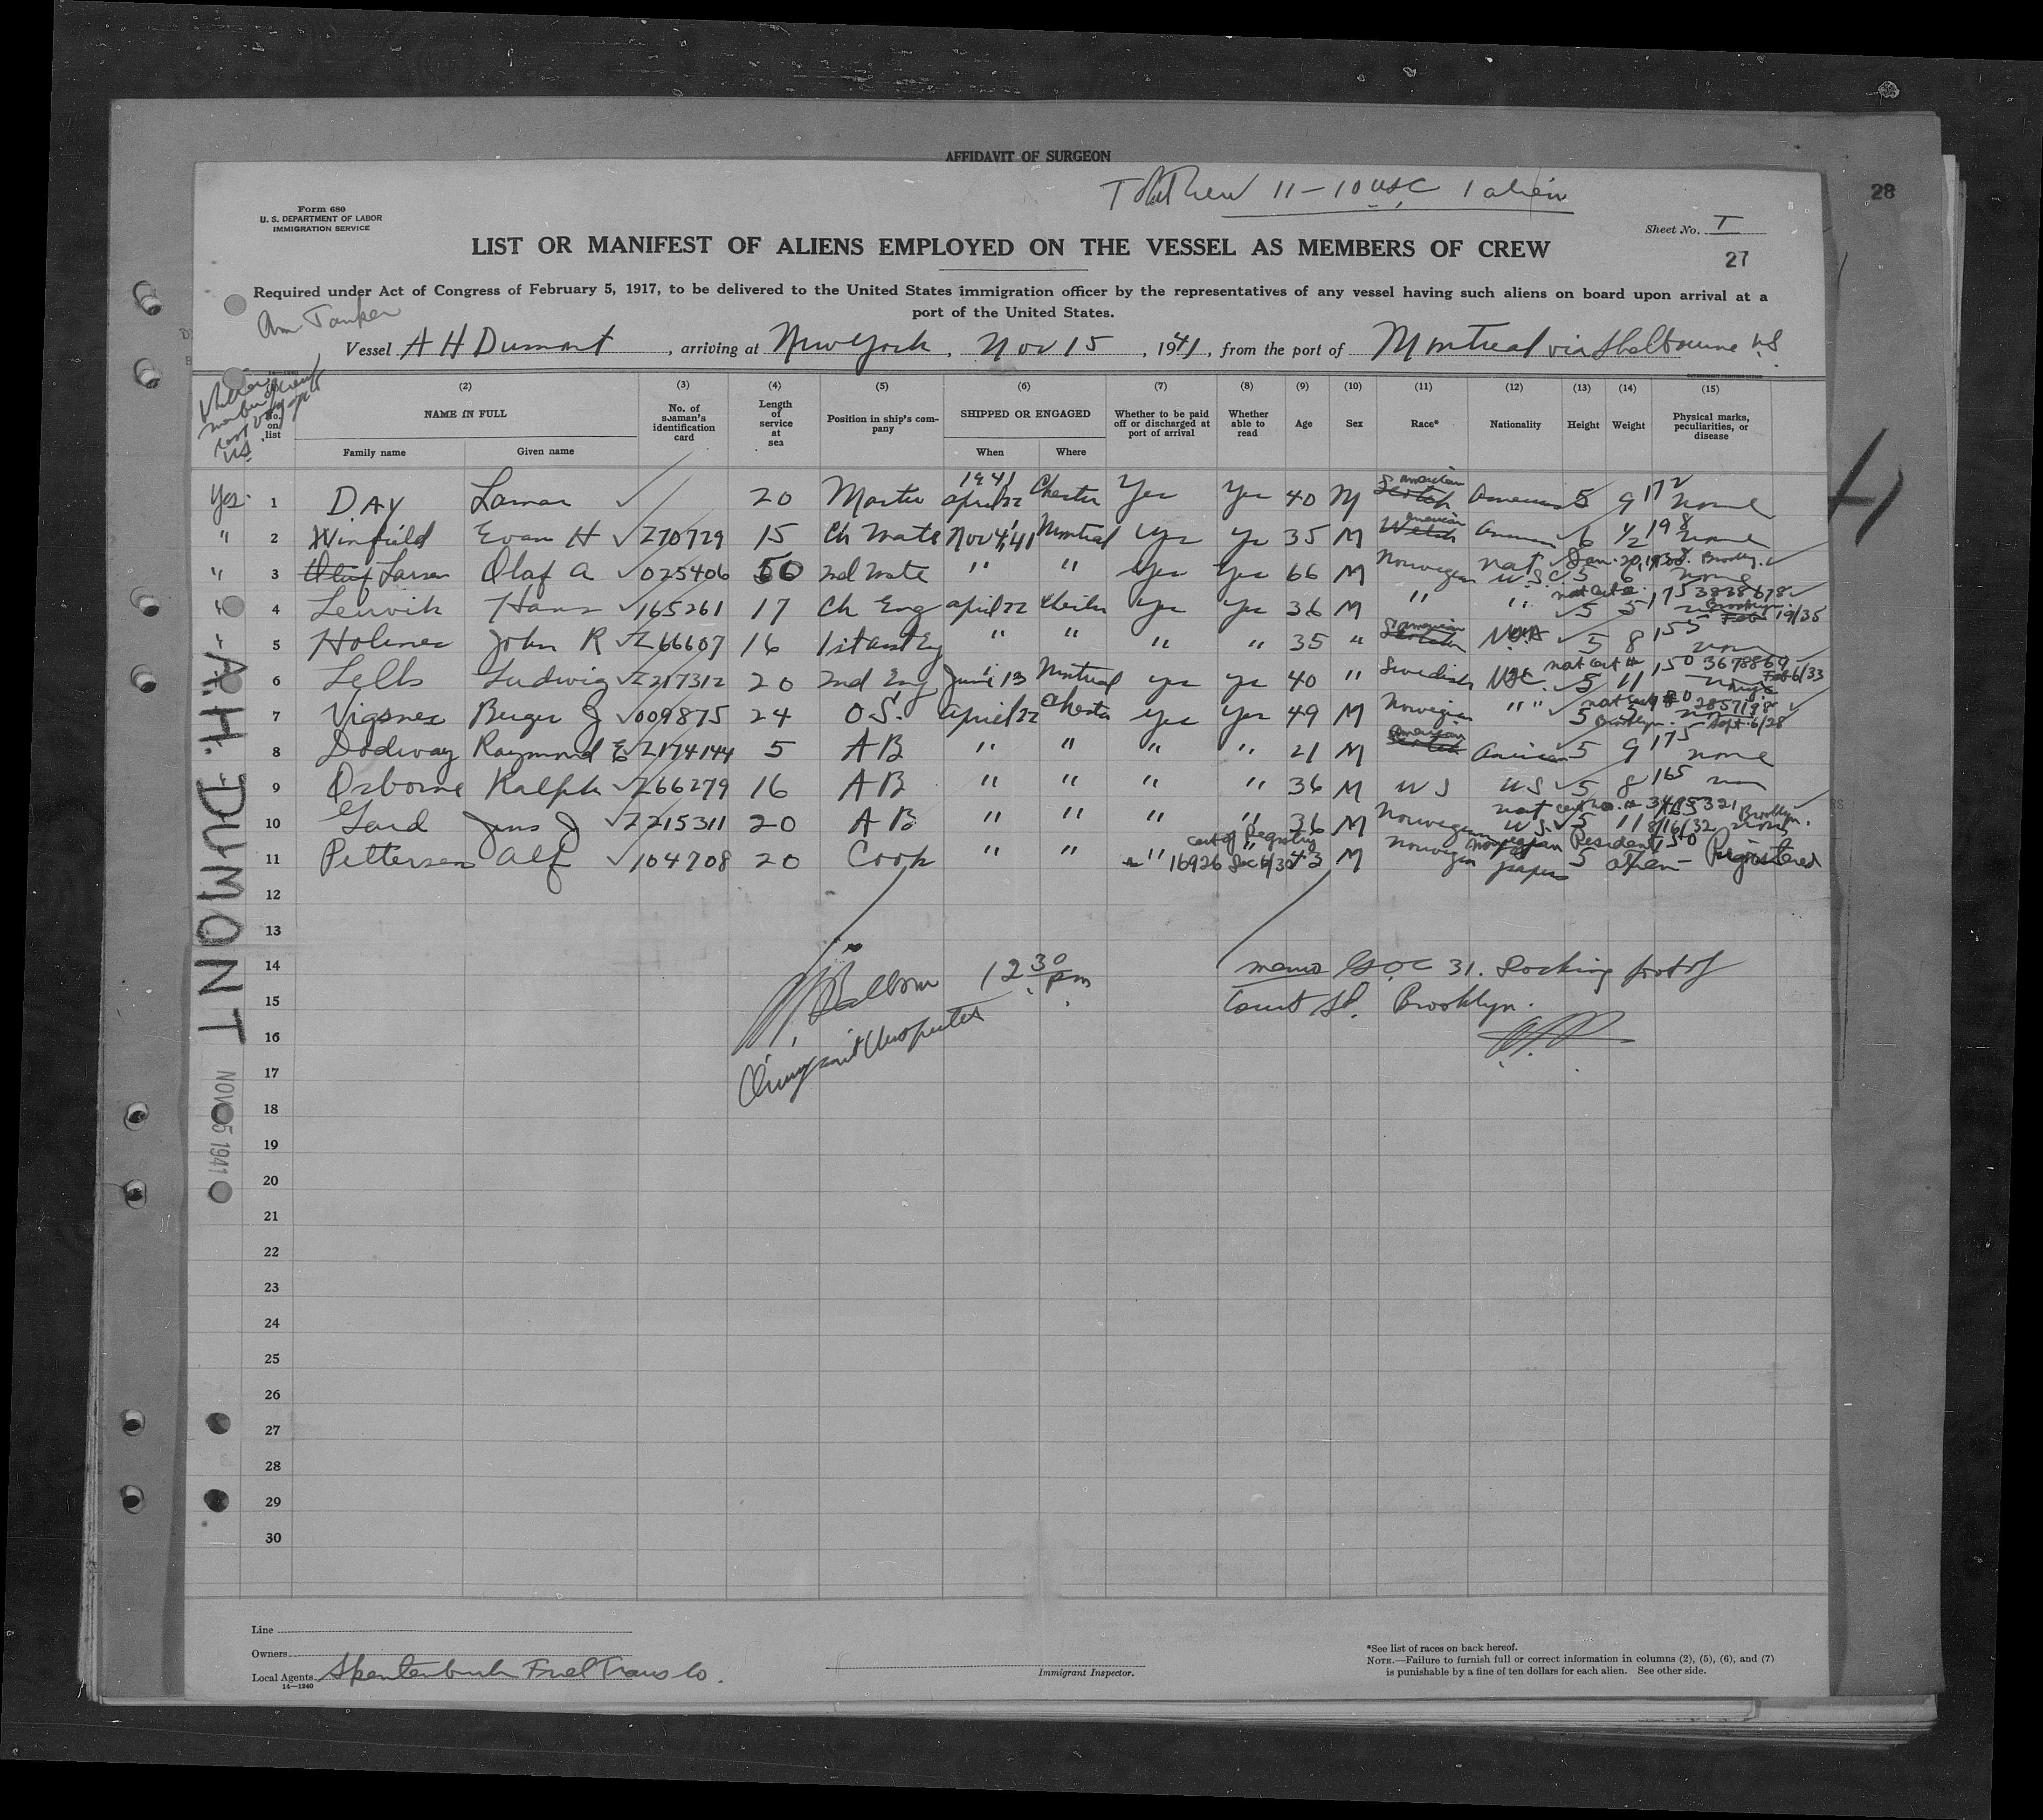 AFFIDAVIT OF SURGEON
Total Crew 11 – 10 USC 1 alien
28
Form 680
U. S. DEPARTMENT OF LABOR
IMMIGRATION SERVICE
Sheet No. I
27
LIST OR MANIFEST OF ALIENS EMPLOYED ON THE VESSEL AS MEMBERS OF CREW
Required under Act of Congress of February 5, 1917, to be delivered to the United States immigration officer by the representatives of any vessel having such aliens on board upon arrival at a
port of the United States.
Am Tanker
Vessel A H Dumont, arriving at New York, Nov 15, 1941, from the port of Montreal via Shelbourne NS
No. on list
(2) NAME IN FULL Family name Given name
(3) No. of seaman's identification card
(4) Length of service at sea
(5) Position in ship's company
(6) SHIPPED OR ENGAGED When Where
(7) Whether to be paid off or discharged at port of arrival
(8) Whether able to read
(9) Age
(10) Sex
(11) Race*
(12) Nationality
(13) Height
(14) Weight
(15) Physical marks, peculiarities, or disease
Yes 1 DAY Lamar 20 Master 1941 April 22 Chester Yes Yes 40 M American American 5 9 172 none
" 2 Winfield Evan H Z70729 15 Ch Mate Nov 4, 41 Montreal Yes Yes 35 M American American 6 1/2 198 none
" 3 Larsen Olaf A 025406 50 2nd Mate " " Yes Yes 66 M Norwegian Nat U.S.C. 5 6 none
" 4 Lervik Hans 165261 17 Ch Eng April 22 Chester Yes Yes 36 M " " nat cert 3838678 5 5 175 Brooklyn 19/35
5 Holmes John R Z66607 16 1st asst Eng " " " " 35 " American 5 8 155 none
6 Lells Ludwig Z217312 20 2nd Eng June 13 Montreal yes yes 40 " Swedish USC nat cert # 3678869 5 11 150 Feb 6/33
7 Vigsnes Berger J 009875 24 O.S. April 22 Chester yes yes 49 M Norwegian " " nat cert # 2857198 5 5 Brooklyn Sept 6/28
8 Dodway Raymond E Z174144 5 AB " " " " 21 M American American 5 9 175 none
9 Osborne Ralph Z66279 16 AB " " " " 36 M US US 5 8 165
10 Gard Jens J Z215311 20 AB " " " " 36 M Norwegian U.S. nat cert no. # 5 11 8/16/32 Brooklyn
11 Pettersen Alf 104708 20 Cook " " " cert of Registry 16926 43 M Norwegian Norwegian papers Resident alien – Registered 5 150
12
13
14
15
16
17
18
19
20
21
22
23
24
25
26
27
28
29
30
A.H. DUMONT
NOV 15 1941
12 30 pm
Immigrant Inspector
memo 31. Docking foot of
Court St. Brooklyn.
Line
Owners
Local Agents Spentonbush Fuel Trans Co.
14—1240
Immigrant Inspector.
*See list of races on back hereof.
NOTE.—Failure to furnish full or correct information in columns (2), (5), (6), and (7)
is punishable by a fine of ten dollars for each alien. See other side.